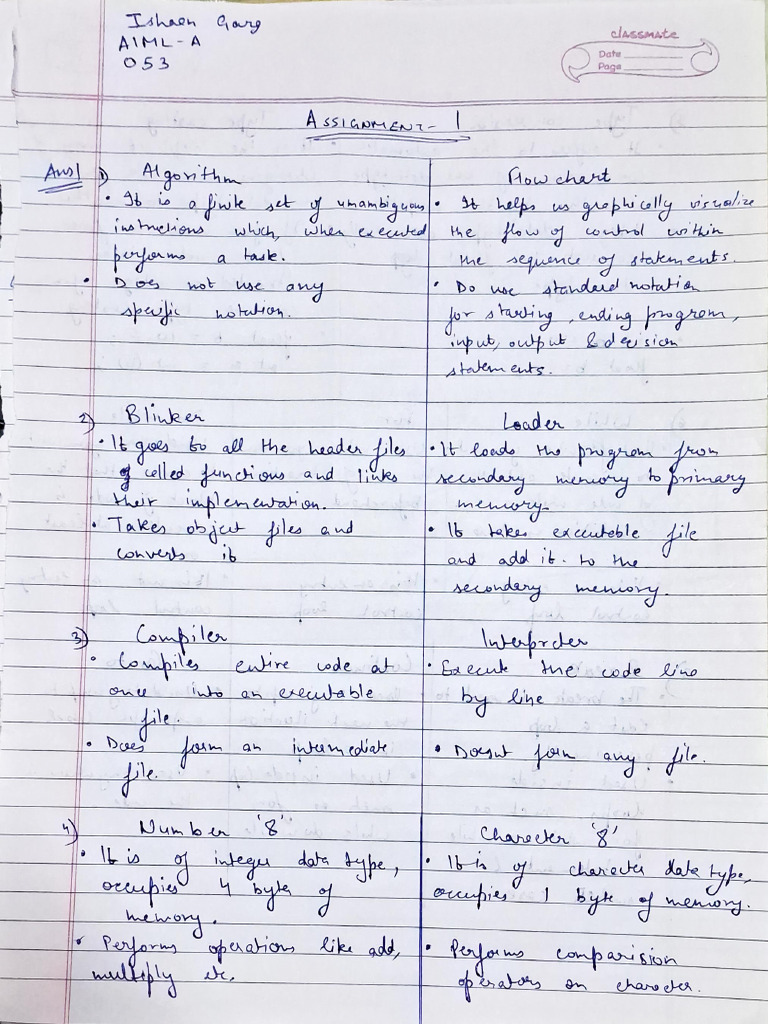 Ishaan Garg
AIML-A
053
classmate
Date
Page
ASSIGNMENT- 1
Ans1
1) Algorithm
• It is a finite set of unambiguous
instructions which, when executed
performs a task.
• Does not use any
specific notation.
Flow chart
• It helps us graphically visualize
the flow of control within
the sequence of statements.
• Do use standard notation
for starting, ending program,
input, output & decision
statements.
2) Blinker
• It goes to all the header files
of called functions and links
their implementation.
• Takes object files and
converts it
Loader
• It loads the program from
secondary memory to primary
memory.
• It takes executable file
and add it. to the
secondary memory.
3) Compiler
• Compiles entire code at
once into an executable
file.
• Does form an intermediate
file.
Interpreter
• Execute the code line
by line
• Doesnt form any file.
4) Number '8'
• It is of integer data type,
occupies 4 byte of
memory.
• Performs operations like add,
multiply etc.
Character '8'
• It is of character data type,
occupies 1 byte of memory.
• Performs comparision
operators on character.